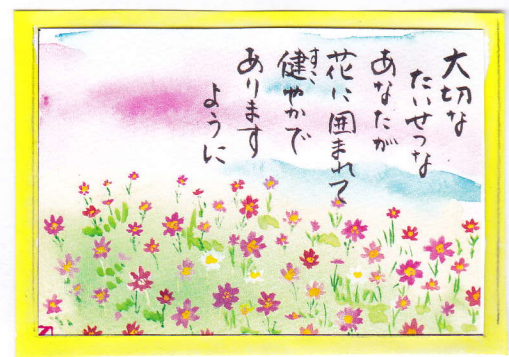 大切な
たいせつな
あなたが
花に囲まれて
健やかで
あります
ように